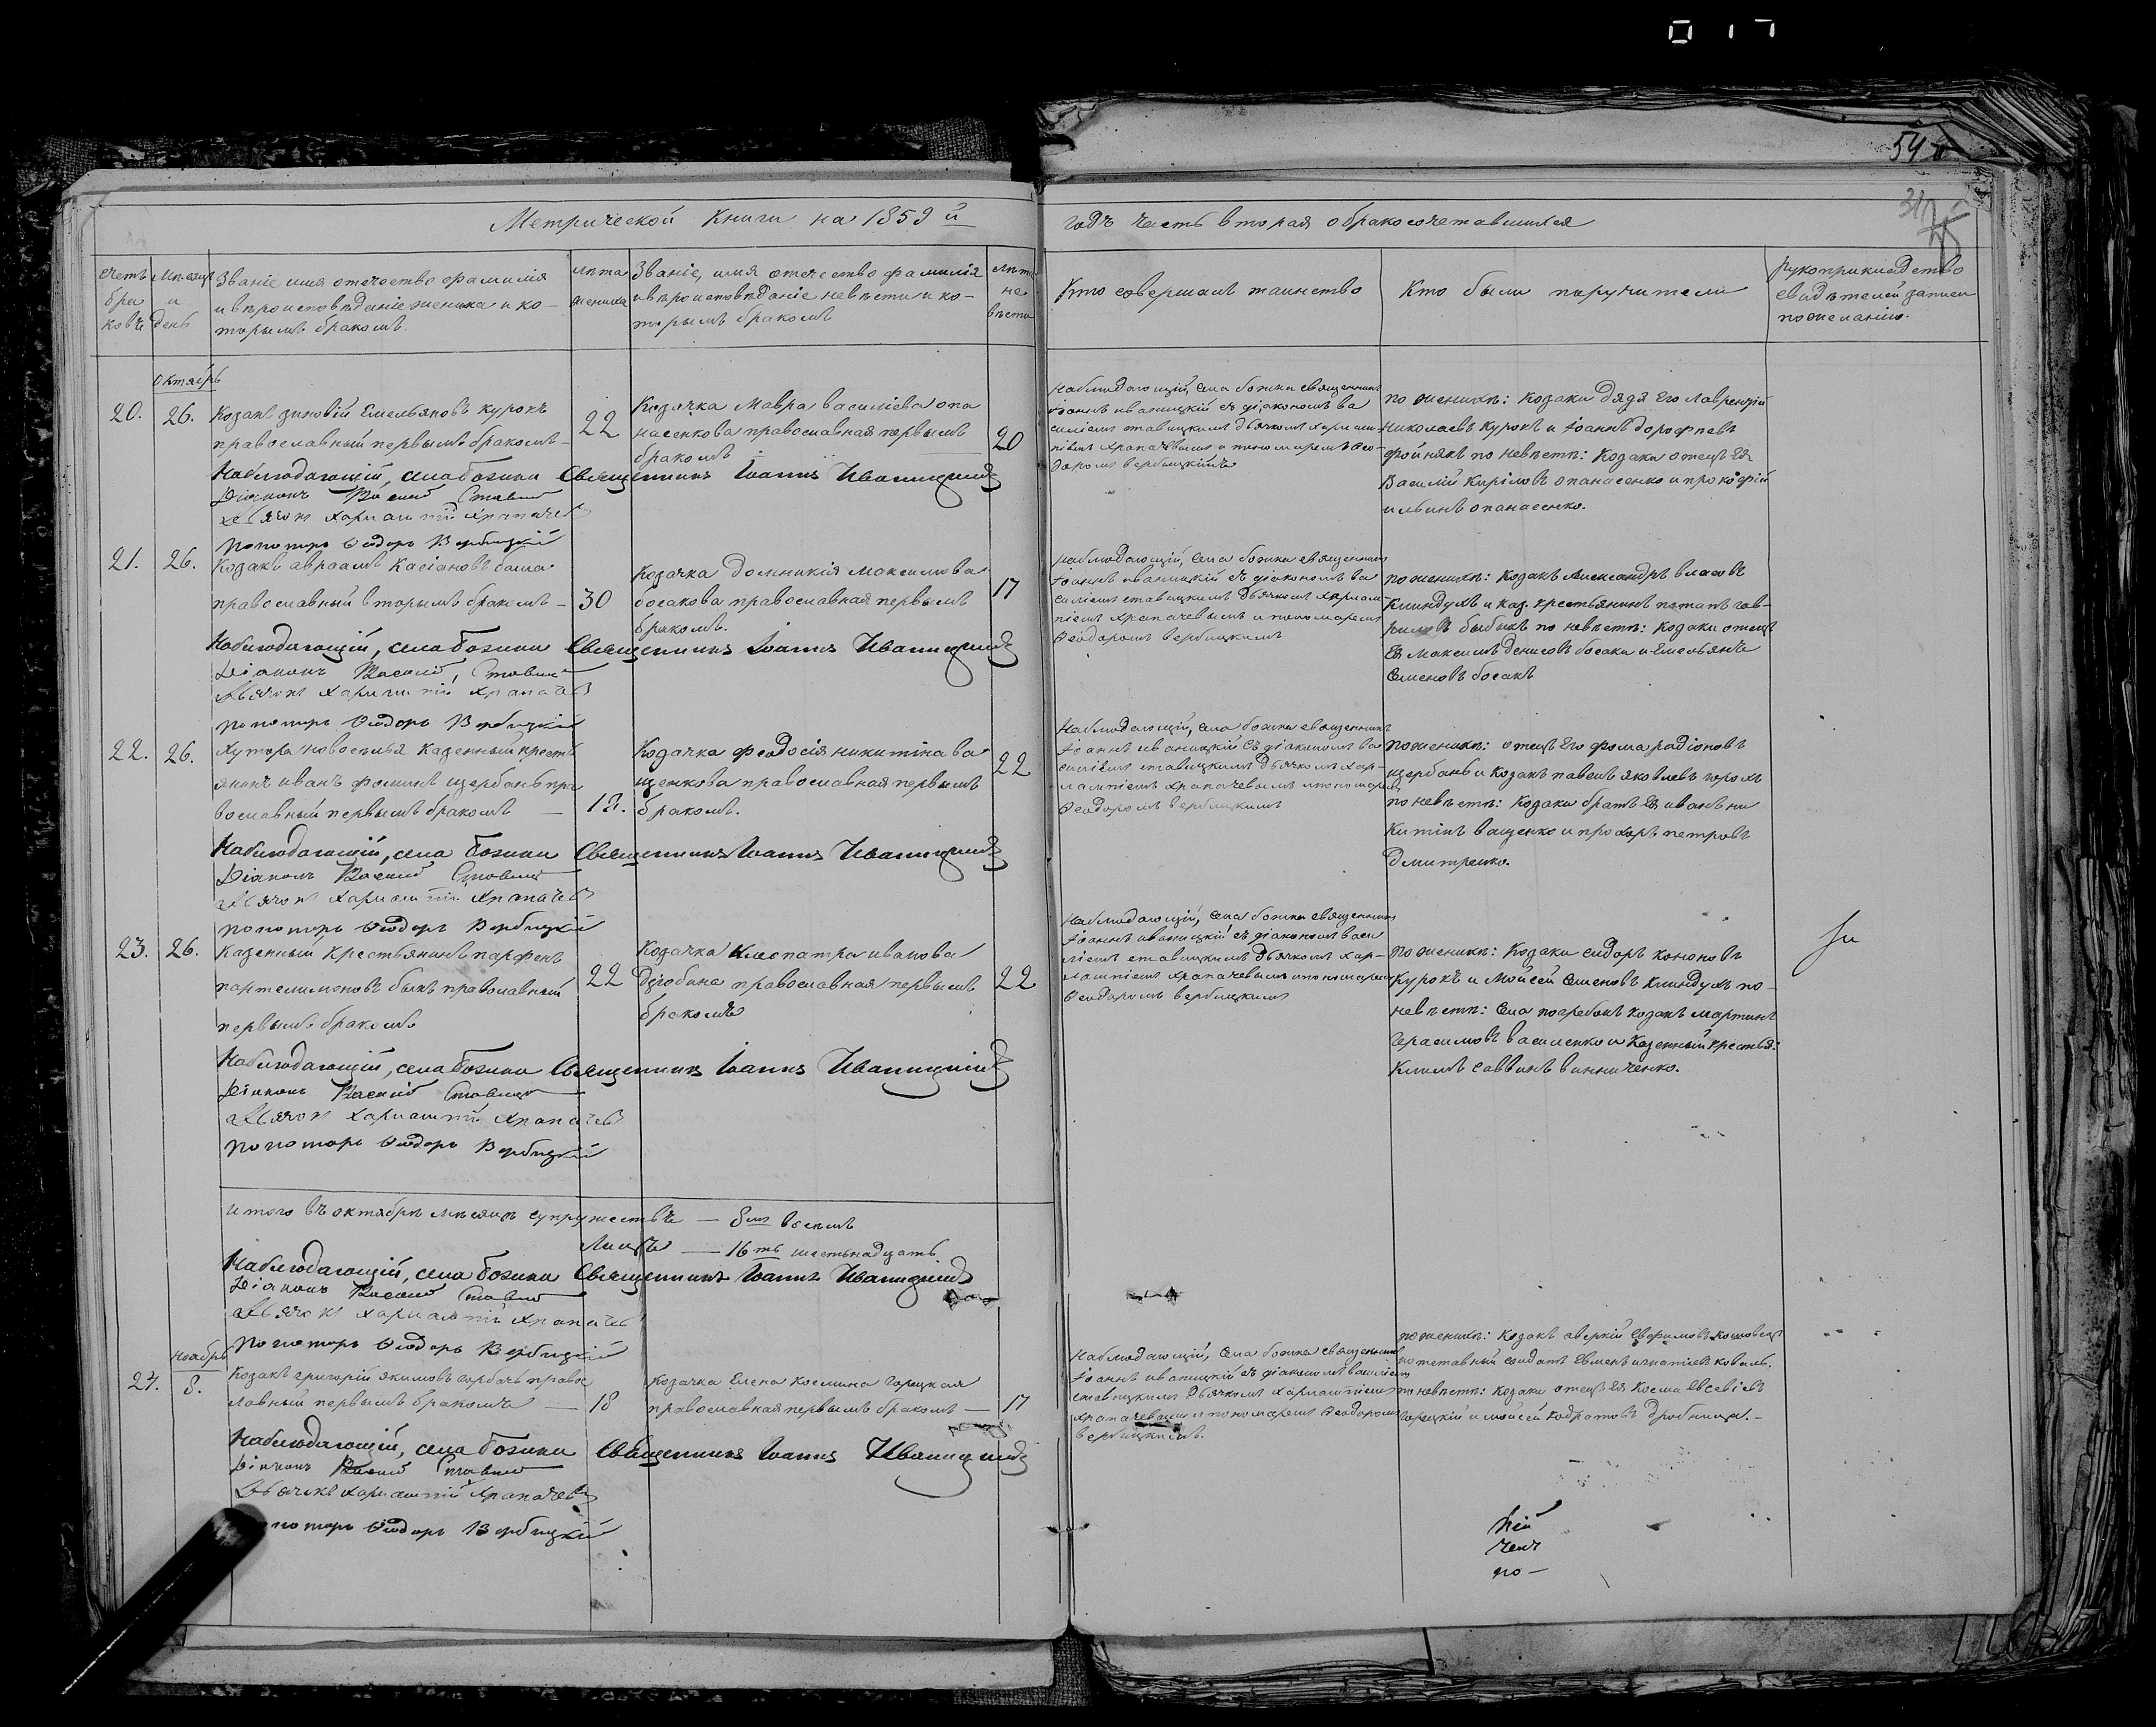 017
54
Метрической Книги на 1859 й годъ часть вторая о бракосочетавшихся
Счетъ браковъ
Мѣсяцъ и день
Званіе имя отчество фамилія
и вѣроисповѣданіе жениха и ко-
торымъ бракомъ.
лѣта
жениха
Званіе, имя отечество фамилія
и вѣроисповѣданіе невѣсти и ко-
торымъ бракомъ
лѣта
не
вѣсти
Кто совершалъ таинство
Кто были поручители
рукоприкладство
свидѣтелей записи
по желанію.
Октябрь
20. 26.
Козакъ зиновій Емельяновъ курокъ
православный первымъ бракомъ -
22
Козачка Мавра василіева опа
насенкова православная первымъ
бракомъ
20
Наблюдающій, села божки священникъ
Іоаннъ иваницкій съ діакономъ ва
силіемъ ставицкимъ дьячкомъ харлам-
піемъ храпачевымъ и пономаремъ Ѳео-
доромъ вербицкимъ
по женихѣ: козаки дядя Его лаврентій
николаевъ курокъ и Іоаннъ дорофѣевъ
фойнякъ по невѣстѣ: Козаки отецъ Ея
Василій Кириловъ опанасенко и прокофій
ильинъ опанасенко.
Наблюдающій, села божки Священникъ Іоаннъ Иваницкій
Діаконъ Василій Ставиц
Дьячокъ Харлампій Храпачев
Пономарь Ѳеодоръ Вербицкій
21. 26.
Козакъ авраамъ Касіановъ бама
православный вторымъ бракомъ -
30
Козачка домникія максимова
босакова православная первымъ
бракомъ.
17
Наблюдающій, села божки священникъ
Іоаннъ иваницкій съ діакономъ ва
силіемъ ставицкимъ дьячкомъ харлам-
піемъ храпачевымъ и пономаремъ
Ѳеодоромъ вербицкимъ
по женихѣ: Козакъ Александръ власовъ
Клиндухъ и каз. крестьянинъ потапъ гав-
риловъ быбыкъ по невѣстѣ: Козаки отецъ
Ея Максимъ денисовъ босаки и Емельянъ
Семеновъ босакъ
Наблюдающій, села божки Священникъ Іоаннъ Иваницкій
Діаконъ Василій Ставиц
Дьячокъ Харлампій Храпачев
Пономарь Ѳеодоръ Вербицкій
22. 26.
Хутора новоселья казенный кресть
янинъ иванъ фоминъ щербань пра
вославный первымъ бракомъ -
18.
Козачка феодосія никитина ва
щенкова православная первымъ
бракомъ.
22
Наблюдающій, села божки священникъ
Іоаннъ иваницкій съ діакономъ ва
силіемъ ставицкимъ дьячкомъ хар-
лампіемъ храпачевымъ и пономаремъ
Ѳеодоромъ вербицкимъ
по женихѣ: отецъ Его фома радіоновъ
щербань и козакъ павелъ яковлевъ горохъ
по невѣстѣ: Козаки братъ Ея иванъ ни
китинъ ващенко и прохоръ петровъ
дмитренко.
Наблюдающій, села божки Священникъ Іоаннъ Иваницкій
Діаконъ Василій Ставиц
Дьячокъ Харлампій Храпачев
Пономарь Ѳеодоръ Вербицкій
23. 26.
Казенный Крестьянинъ парфенъ
пантелимоновъ быкъ православный
первымъ бракомъ
22
Козачка Клеопатра иванова
дзюбина православная первымъ
бракомъ
22
Наблюдающій, села божки священникъ
Іоаннъ иваницкій съ діакономъ васи
ліемъ ставицкимъ дьячкомъ хар-
лампіемъ храпачевымъ и пономаремъ
Ѳеодоромъ вербицкимъ
по женихѣ: Козаки сидоръ кононовъ
Курокъ и Мойсей Семеновъ Клиндухъ по
невѣстѣ: Села погребокъ козакъ мартинъ
Герасимовъ василенко и Казенный крестья:
Климъ саввинъ винниченко.
Наблюдающій, села божки Священникъ Іоаннъ Иваницкій
Діаконъ Василій Ставиц
Дьячокъ Харлампій Храпачев
Пономарь Ѳеодоръ Вербицкій
итого въ октябрѣ мѣсяцѣ супружествъ - 8мъ восемь
Лицъ - 16ть шестьнадцать
Наблюдающій, села божки Священникъ Іоаннъ Иваницкій
Діаконъ Василій Ставиц
Дьячокъ Харлампій Храпачев
Пономарь Ѳеодоръ Вербицкій
Ноябрь
24. 8.
Козакъ григорій якимовъ горбачъ правос
лавный первымъ бракомъ -
18
Козачка Елена Космина горецкая
православная первымъ бракомъ -
17
Наблюдающій, села божки священникъ
Іоаннъ иваницкій съ діакономъ василіемъ
ставицкимъ дьячкомъ харлампіемъ
храпачевымъ и пономаремъ Ѳеодоромъ
вербицкимъ.
по женихѣ: козакъ аверкій Ефимовъ кошовецъ
отставный солдатъ Евменъ игнатіевъ коваль.
по невѣстѣ: козаки отецъ Ея Косма Евсевіевъ
горецкій и мойсей кодратовъ дробница. -
Наблюдающій, села божки Священникъ Іоаннъ Иваницкій
Діаконъ Василій Ставиц
Дьячокъ Харлампій Храпачевъ
пономарь Ѳеодоръ Вербицкій